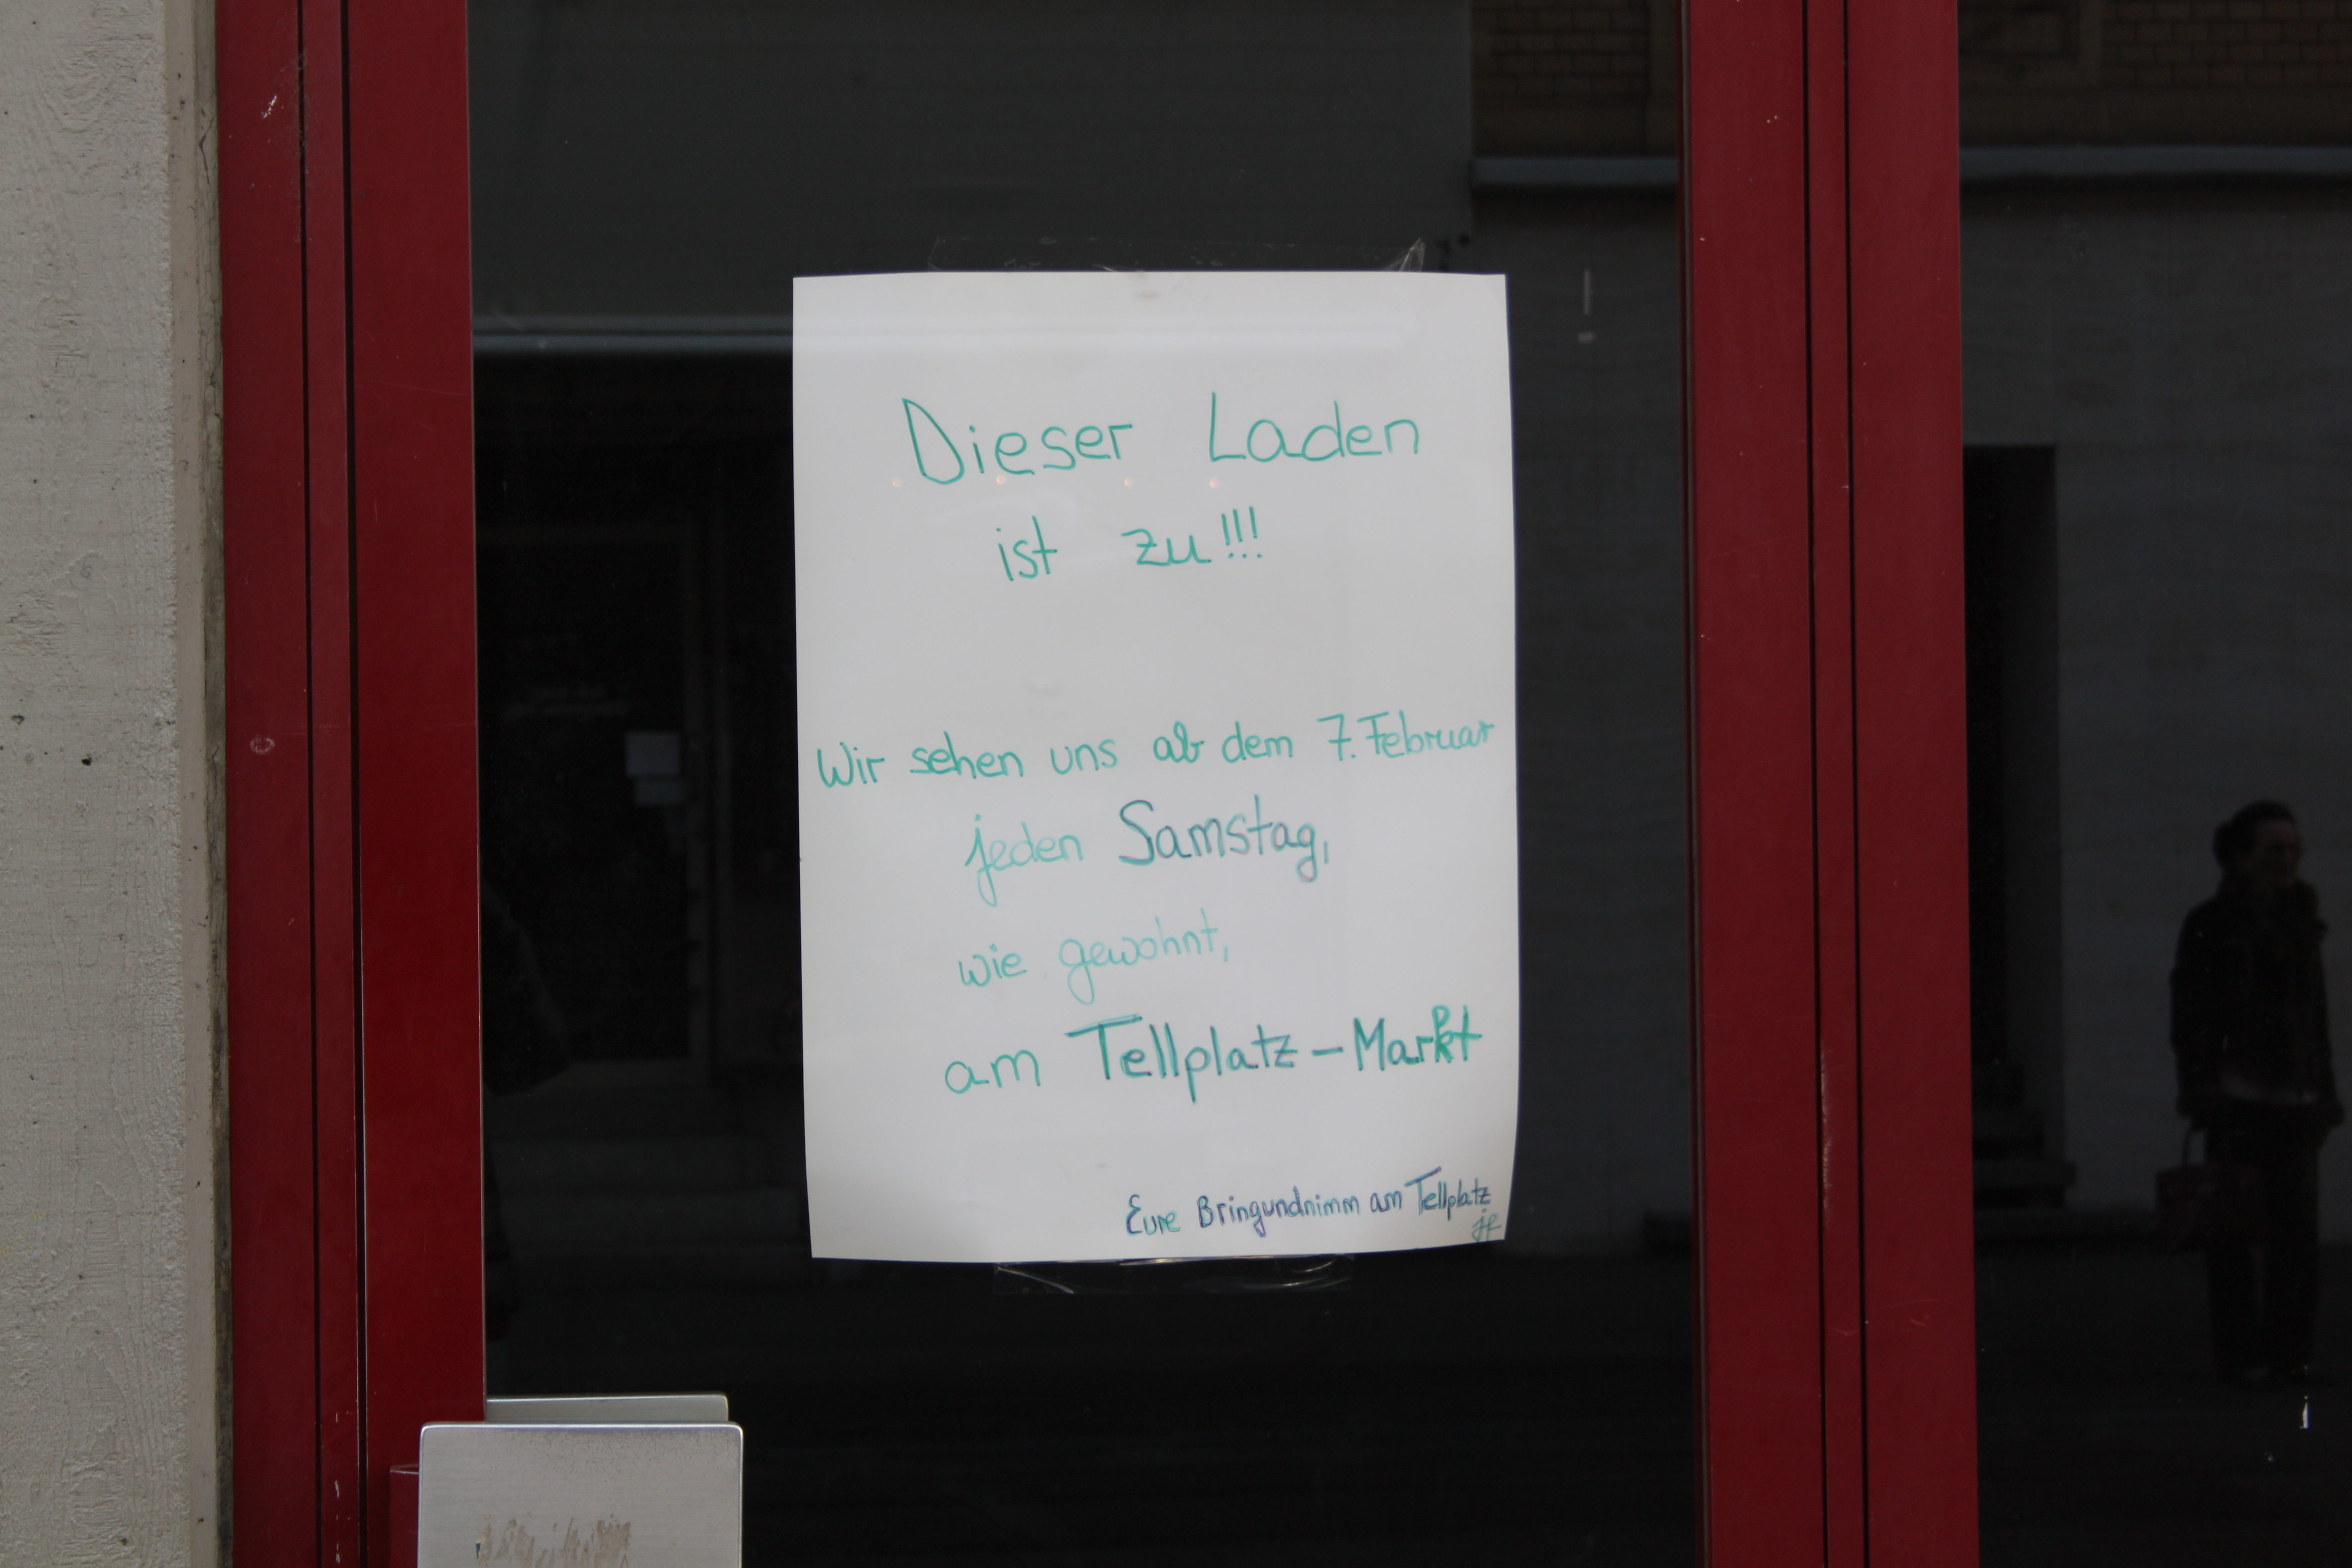 Dieser Laden
ist zu!!!
Wir sehen uns ab dem 7. Februar
jeden Samstag,
wie gewohnt,
am Tellplatz-Markt
Eure Bringundnimm am Tellplatz